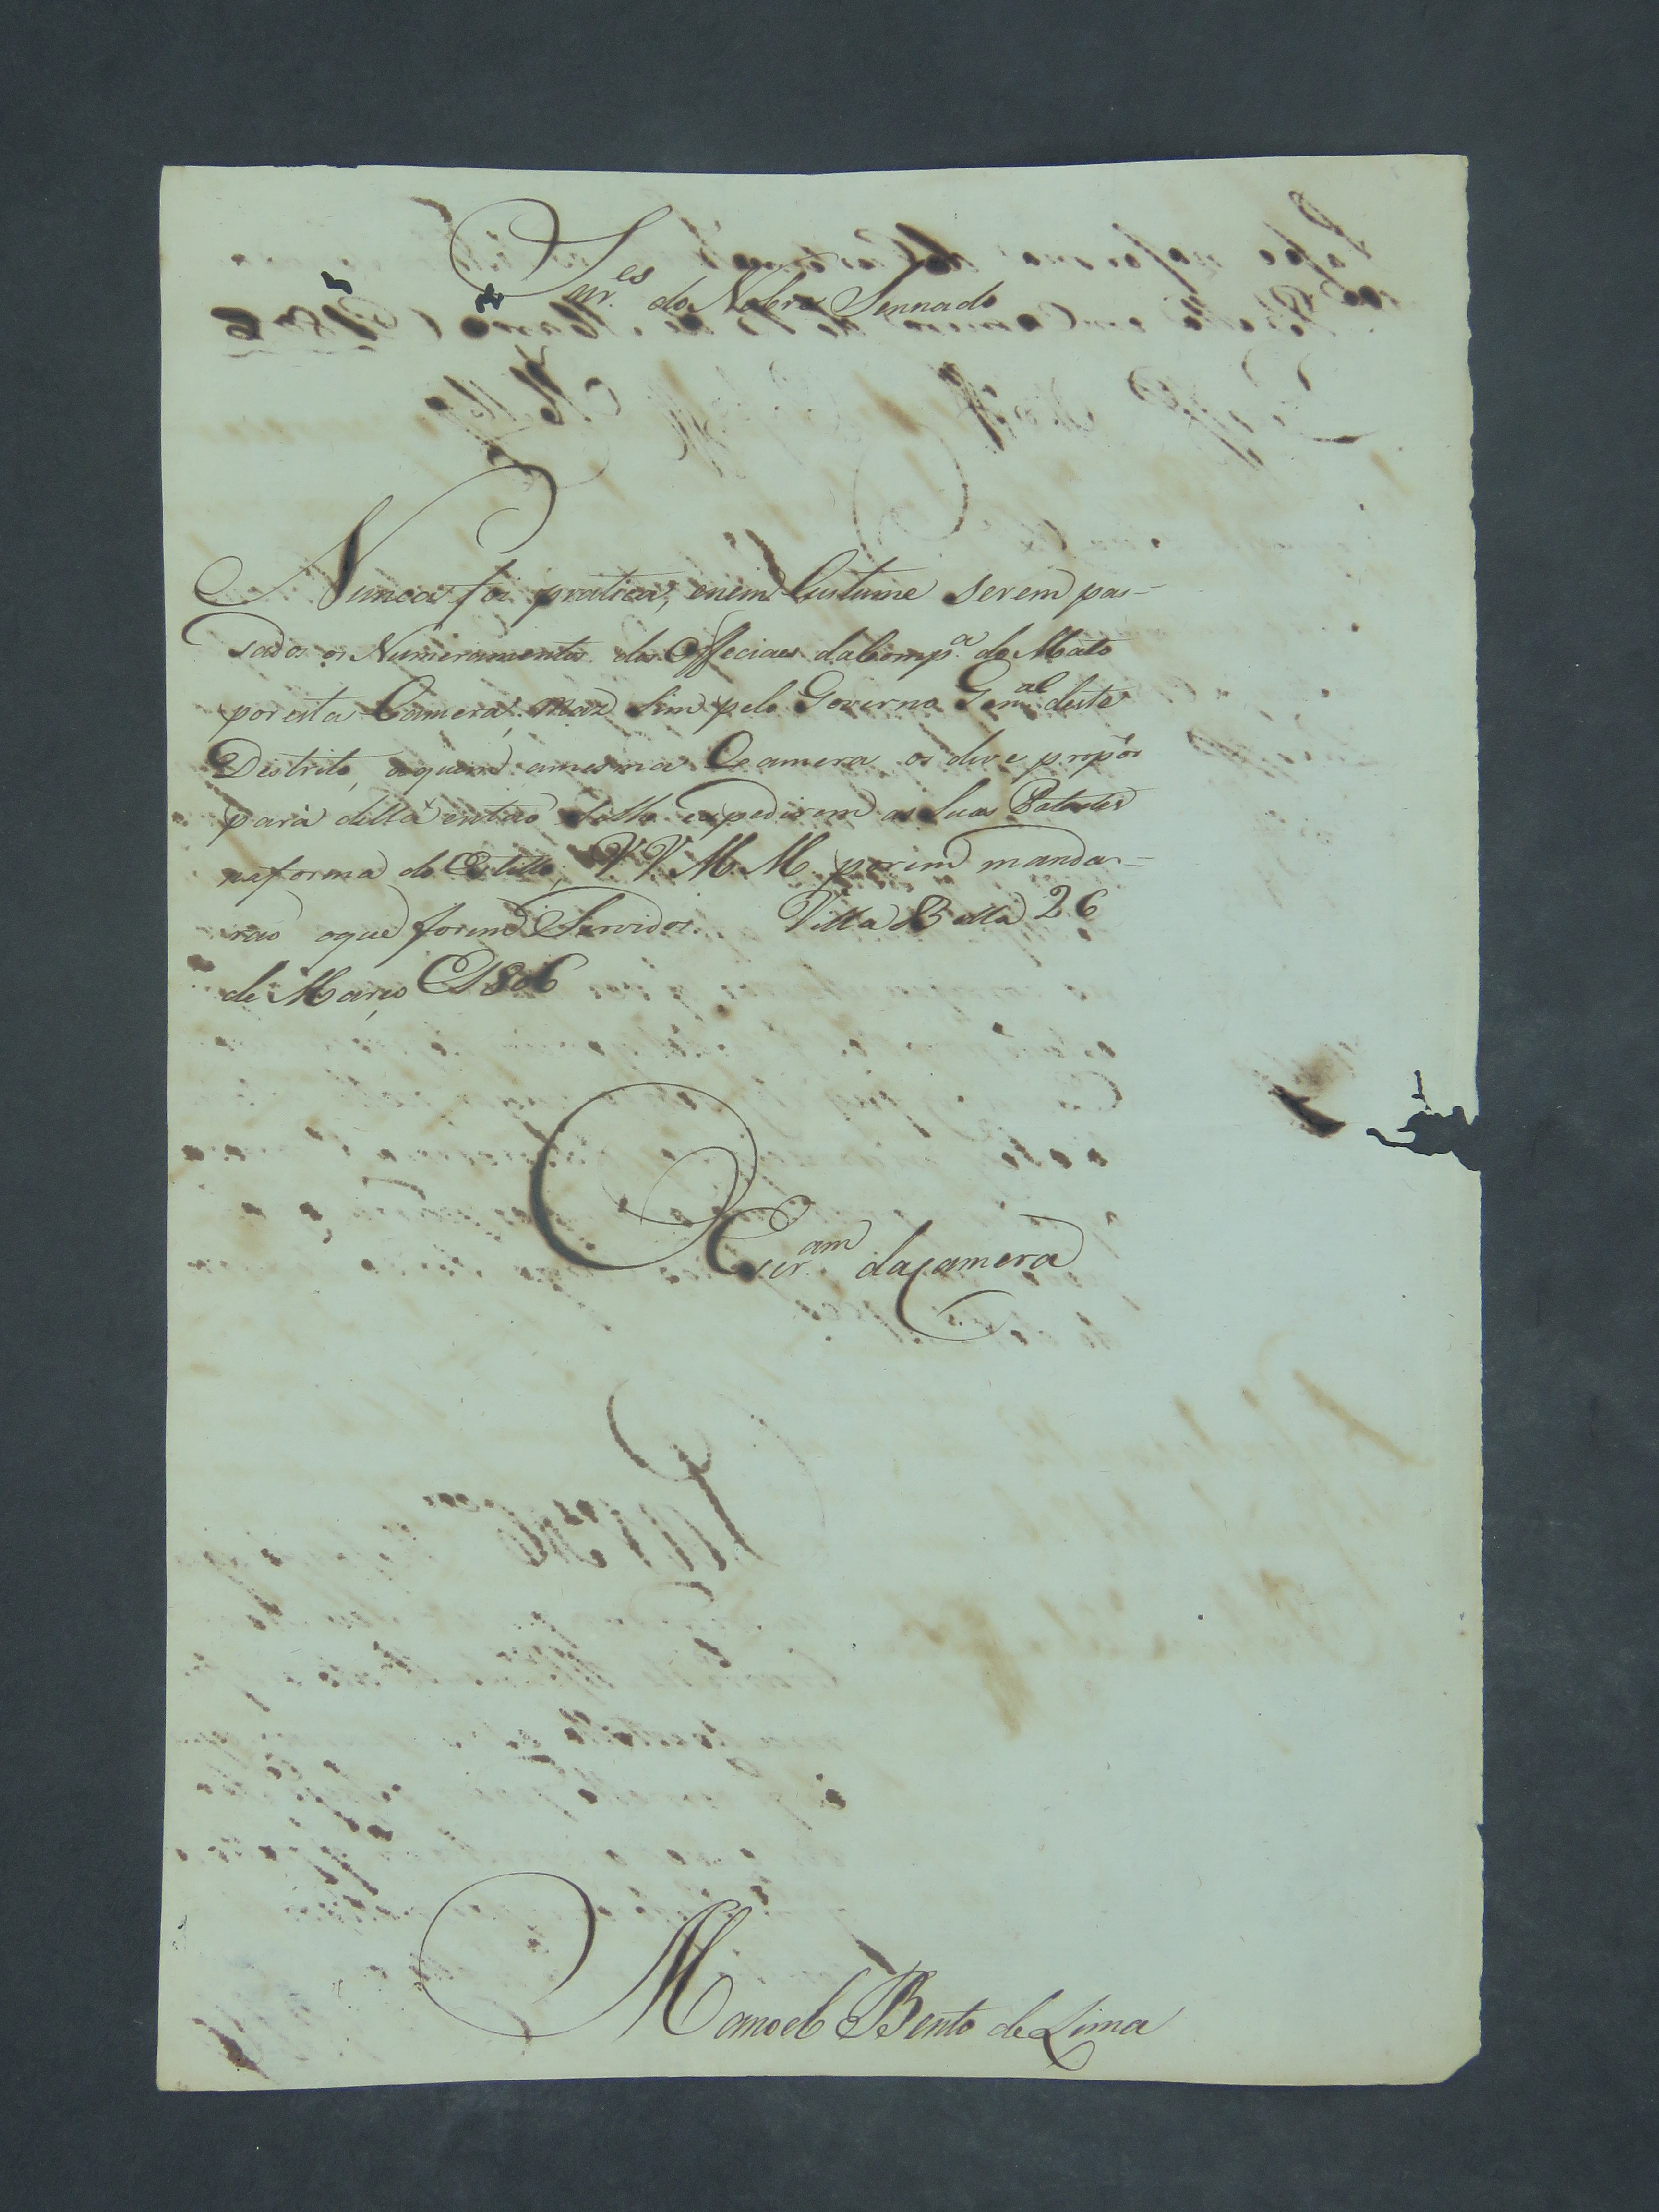 Snr.es do Nobre Sennado
Nunca foi pratica, enem Custume serem pas-
sados os Numeramentos dos Officiaes daComp.a do Mato
por esta Camera, mas sim pelo Governo Gen.al deste
Destrito, aquem amesma Camera os deve propôr
para della então se lhe expedirem as suas Patentes
naforma do Estillo, VV M M porem manda-
rão oque forem Servidos. Villa Bella 26
de Março 1806
Escr.am dacamera
Manoel Bento de Lima